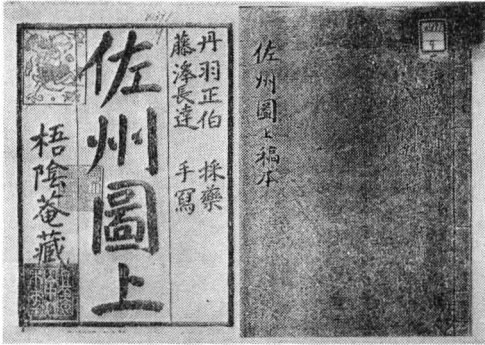 佐州圖上稿本
丹羽正伯 採藥
藤澤長達 手寫
佐州圖上
梧陰菴藏